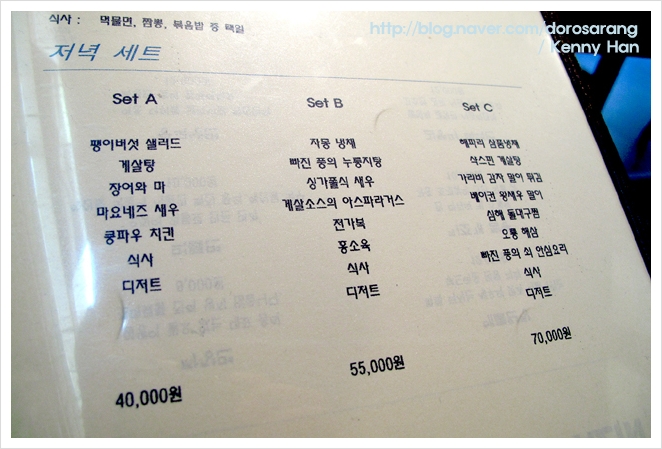 http://blog.naver.com/dorosarang
/ Kenny Han
식사 : 먹물면, 짬뽕, 볶음밥 중 택일
저녁 세트
Set A
팽이버섯 샐러드
게살탕
장어와 마
마요네즈 새우
쿵파우 치킨
식사
디저트
40,000원
Set B
자몽 냉채
빠진 풍의 누룽지탕
싱가폴식 새우
게살소스의 아스파라거스
전가복
홍소육
식사
디저트
55,000원
Set C
해파리 삼품냉채
샥스핀 게살탕
가리비 감자 말이 튀김
베이컨 왕새우 말이
심해 돌대구찜
오룡 해삼
빠진 풍의 쇠 안심요리
식사
디저트
70,000원